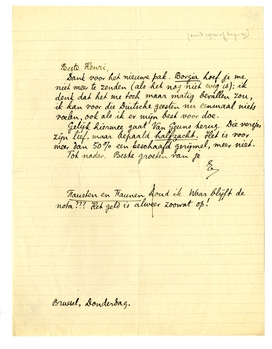 Beste Henri,
Dank voor het nieuwe pak. Borgia hoef je me
niet meer te zenden (als het nog niet weg is); ik
denk dat het me toch maar matig bevallen zou,
ik kan voor die Duitsche geesten nu eenmaal niets
voelen, ook als ik er mijn best voor doe.
Gelijk hiermee gaat Van Geuns terug. Die versjes
zijn lief, maar bepaald halfzacht. Het is voor
meer dan 50% een beschaafd gerijmel, meer niet.
Tot nader. Beste groeten van je
E
Fausten en Faunen houd ik. Waar blijft de
nota??? Het geld is alweer zoowat op!
Brussel, Donderdag.